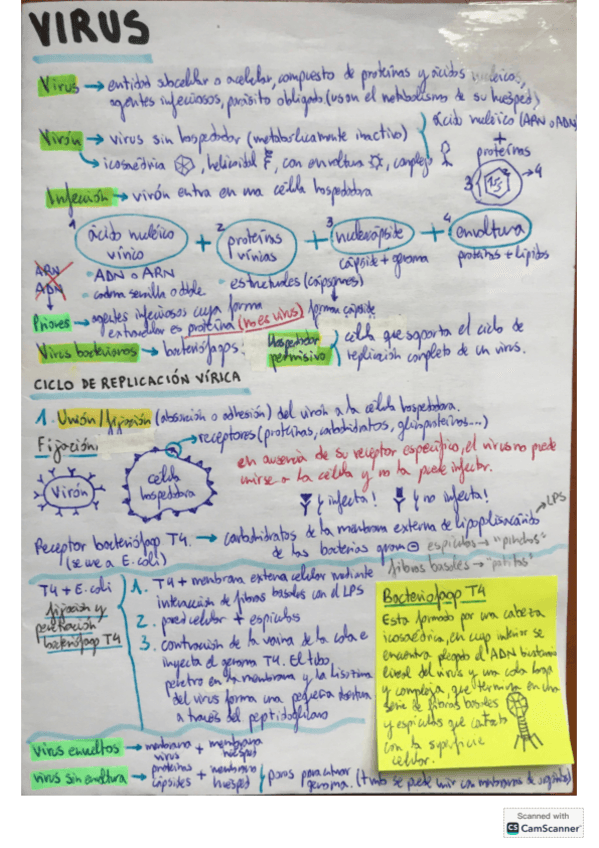 VIRUS
Virus → entidad subcelular o acelular, compuesto de proteínas y ácidos nucleicos,
agentes infecciosos, parásito obligado (usan el metabolismo de su huésped)
Virión → virus sin hospedador (metabólicamente inactivo)
ácido nucleico (ARN o ADN)
+
proteínas
↳ icosaédrica, helicoidal, con envoltura, complejo
3 → 4
Infección → virión entra en una célula hospedadora
1 ácido nucleico vírico + 2 proteínas víricas + 3 nucleocápside + 4 envoltura
cápside + genoma
proteínas + lípidos
ARN
ADN
· ADN o ARN
· cadena sencilla o doble
· estructurales (capsómeros)
forman cápside
Priones → agentes infecciosos cuya forma
extracelular es proteína (no es virus)
Virus bacterianos → bacteriófagos.
Hospedador permisivo
célula que soporta el ciclo de
replicación completo de un virus.
CICLO DE REPLICACIÓN VÍRICA
1. Unión/fijación (absorción o adhesión) del virión a la célula hospedadora.
Fijación:
→ receptores (proteínas, carbohidratos, glicoproteínas...)
en ausencia de su receptor específico, el virus no puede
unirse a la célula y no la puede infectar.
Virión
célula
hospedadora
Y infecta!
Y no infecta!
Receptor bacteriófago T4. → carbohidratos de la membrana externa de lipopolisacárido → LPS
(se une a E. coli)
de las bacterias gram ⊖
espículas → "pinchos"
fibras basales → "patitas"
T4 + E. coli
fijación y
penetración
bacteriófago T4
1. T4 + membrana externa celular mediante
interacción de fibras basales con el LPS
2. pared celular + espículas
3. contracción de la vaina de la cola e
inyecta el genoma T4. El tubo
penetra en la membrana y la lisozima
del virus forma una pequeña apertura
a través del peptidoglicano
Bacteriófago T4
Esta formado por una cabeza
icosaédrica, en cuyo interior se
encuentra plegado el ADN bicatenario
lineal del virus y una cola larga
y compleja, que termina en una
serie de fibras basales
y espículas que contacta
con la superficie
celular.
virus envueltos → membrana virus + membrana huésped
virus sin envoltura → proteínas cápsides + membrana huésped
poros para entrar
genoma. (también se puede unir con membranas de)
Scanned with
CS CamScanner